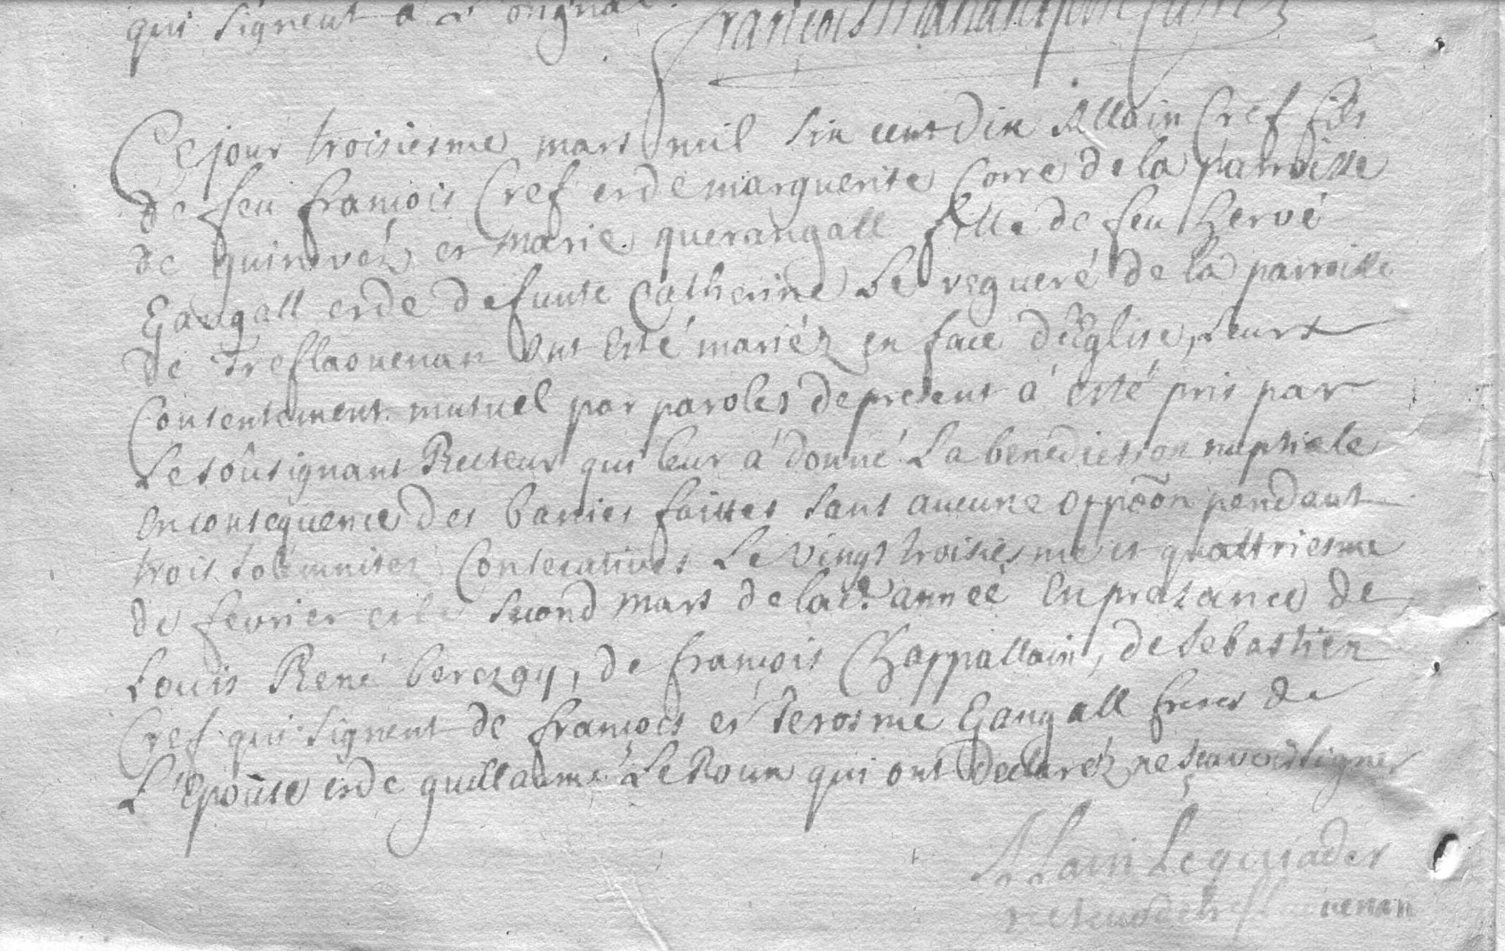 qui signent à l'original
Ce jour troisiesme mars mil six cent dix Allain Cref fils
de feu François Cref et de marguerite Corre de la parroisse
de guinevéz et Marie querangall fille de feu Hervé
Gangall et de defunte Catherine Le vegueré de la parroisse
de Treflaouenan ont esté mariéz en face d'Eglise, Leurs
Consentement mutuel par paroles de present à esté pris par
Le soûsignant Recteur qui leur à donné La benediction nuptiale
en consequence des bannies faittes sans aucune oppõõn pendant
trois solemnites Consecutives Le vingt troisiesme et quattriesme
de fevrier et le second mars de lad. année En presance de
Louis René berezay, de François Chappallain, de Sebastien
Cref qui signent de François et Jerosme Gangall freres de
L'Epoûse et de guillaume Le Roux qui ont declaréz ne sçavoir signer
Allain Le guiader
recteur de treflaouenan